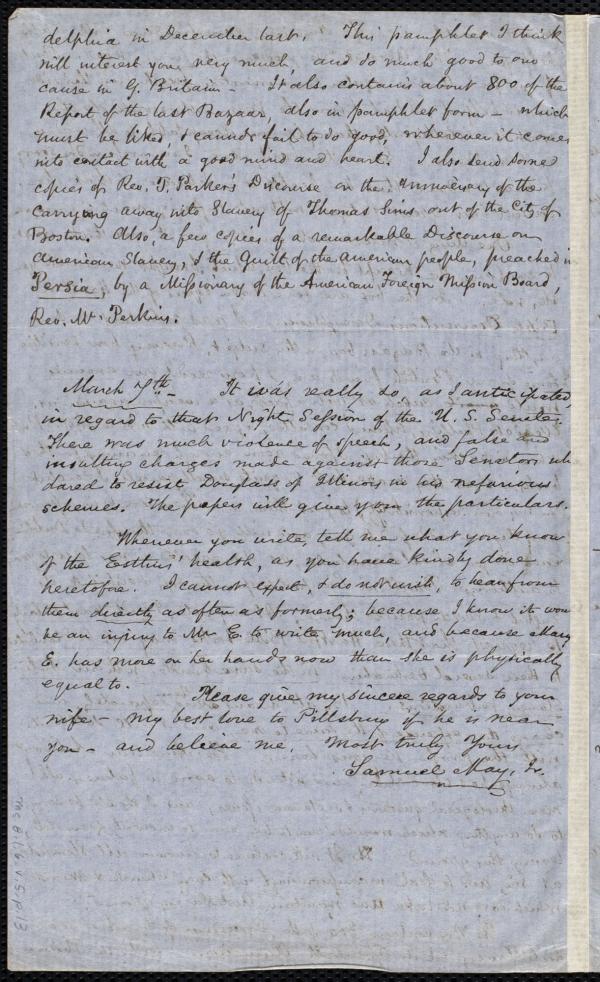 delphia in December last. This pamphlet I think
will interest you very much, and do much good to our
cause in G. Britain - It also contains about 800 of the
Report of the last Bazaar, also in pamphlet form - which
must be liked, & cannot fail to do good, wherever it comes
into contact with a good mind and heart. I also send some
copies of Rev. T. Parker's Discourse on the Anniversary of the
carrying away into Slavery of Thomas Sims out of the City of
Boston. Also, a few copies of a remarkable Discourse on
American Slavery, & the Guilt of the American people, preached in
Persia, by a Missionary of the American Foreign Mission Board,
Rev. Mr. Perkins.
March 7th - It was really so, as I anticipated,
in regard to that Night Session of the U. S. Senate.
There was much violence of speech, and false and
insulting charges made against those Senators who
dared to resist Douglass of Illinois in his nefarious
schemes. The papers will give you the particulars.
Whenever you write, tell me what you know
of the Estlins' health, as you have kindly done
heretofore. I cannot expect, & do not wish, to hear from
them directly as often as formerly; because I know it wou
be an injury to Mr E. to write much, and because Mary
E. has more on her hands now than she is physically
equal to. Please give my sincere regards to your
wife - my best love to Pillsbury if he is near
you - and believe me, Most truly Yours
Samuel May, Jr.
Ms. B.1.6 v.5 p.13